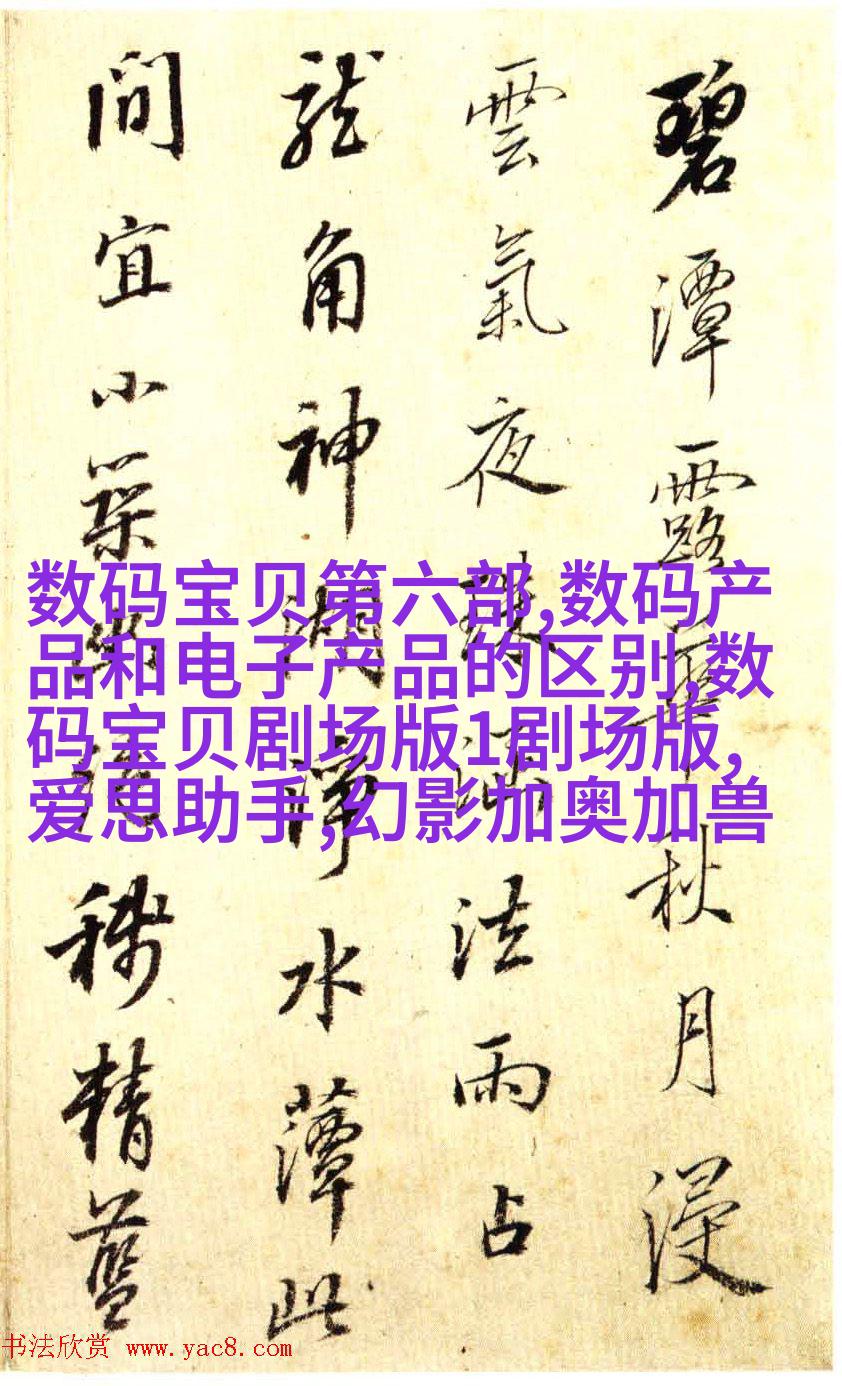 碧潭露華秋月浸
雲氣夜法雨占
龍角神湖淨水蕈此
間宜小築精藍
数码宝贝第六部,数码产
品和电子产品的区别,数
码宝贝剧场版1剧场版,
爱思助手,幻影加奥加兽
书法欣赏 www.yac8.com